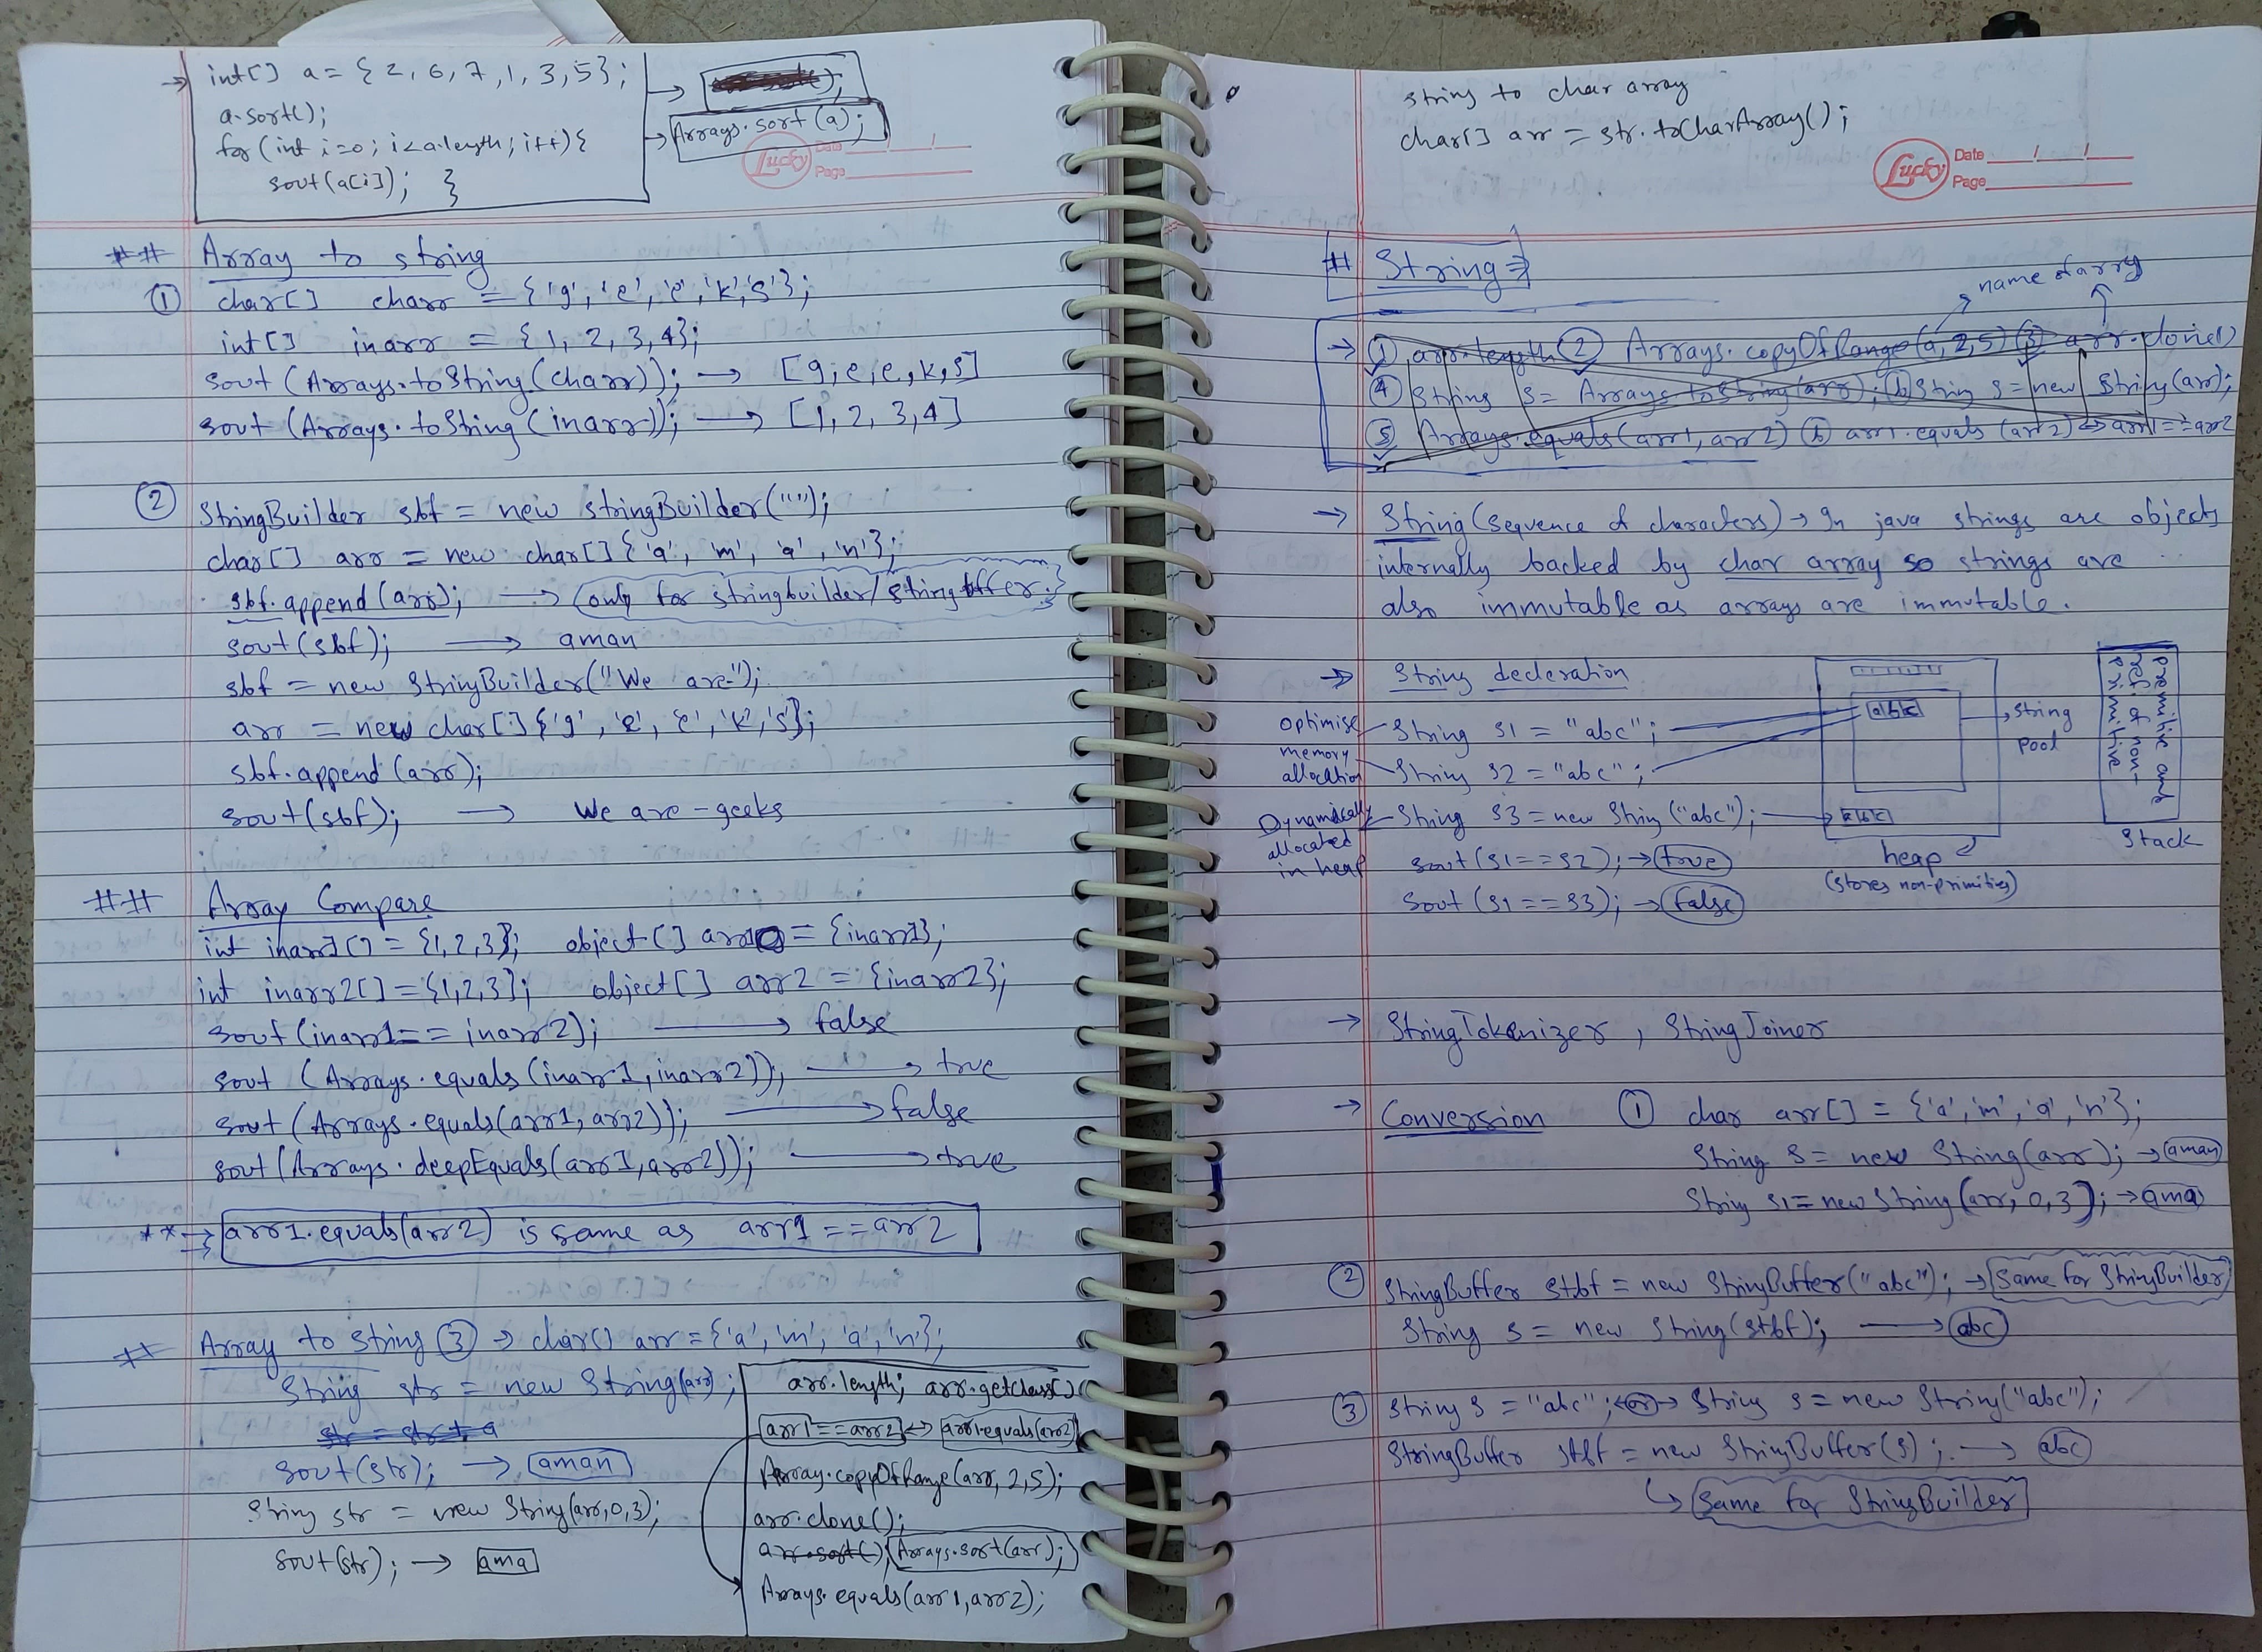 → int[] a = {2, 6, 7, 1, 3, 5};
a.sort();
→ Arrays.sort(a);
for(int i=0; i<a.length; i++){
sout(a[i]); }
Lucky
Date / /
Page
## Array to string
① char[] charr = {'g', 'e', 'e', 'k', 's'};
int[] inarr = {1, 2, 3, 4};
sout (Arrays.toString(charr)); → [g, e, e, k, s]
sout (Arrays.toString(inarr)); → [1, 2, 3, 4]
② StringBuilder sbf = new stringBuilder("");
char[] arr = new char[]{'a', 'm', 'a', 'n'};
sbf.append(arr); → (only for stringbuilder/stringbffer.)
sout(sbf); → aman
sbf = new StringBuilder("We are-");
arr = new char[]{'g', 'e', 'e', 'k', 's'};
sbf.append(arr);
sout(sbf); → We are-geeks
## Array Compare
int inarr1[] = {1,2,3}; object[] arr1 = {inarr1};
int inarr2[] = {1,2,3}; object[] arr2 = {inarr2};
sout(inarr1 == inarr2); → false
sout (Arrays.equals(inarr1, inarr2)); → true
sout (Arrays.equals(arr1, arr2)); → false
sout (Arrays.deepEquals(arr1, arr2)); → true
**→ arr1.equals(arr2) is same as arr1 == arr2
** Array to string ③ → char[] arr = {'a', 'm', 'a', 'n'};
String str = new String(arr);
str = str + a
sout(str); → aman
String str = new String(arr,0,3);
sout(str); → ama
arr.length; arr.getclass()
arr1 == arr2 ↔ arr1.equals(arr2)
Array.copyOfRange(arr, 2, 5);
arr.clone();
arr.sort(); Arrays.sort(arr);
Arrays.equals(arr1, arr2);
string to char array
char[] arr = str.toCharArray();
Lucky
Date / /
Page
# String ⇒
name of array
→ ① arr.length ② Arrays.copyOfRange(a, 2, 5) ③ arr.clone()
④ String s = Arrays.toString(arr); ⓑ String s = new String(arr);
⑤ Arrays.equals(arr1, arr2) ⓑ arr1.equals(arr2) ⇔ arr1 == arr2
→ String (sequence of characters) → In java strings are objects
internally backed by char array so strings are
also immutable as arrays are immutable.
→ String decleration
optimise memory allocation
String s1 = "abc";
String s2 = "abc";
Dynamically allocated in heap
String s3 = new String("abc");
sout(s1==s2); → true
sout(s1==s3); → false
abc
→ string pool
abc
heap
(stores non-primities)
premitive and
ref of non-
primitive
Stack
→ StringTokenizer, StringJoiner
→ Conversion ① char arr[] = {'a', 'm', 'a', 'n'};
String s = new String(arr); → aman
String s1 = new String(arr, 0, 3); → ama
② StringBuffer stbf = new StringBuffer("abc"); → Same for StringBuilder
String s = new String(stbf); → abc
③ String s = "abc"; ←or→ String s = new String("abc");
StringBuffer stbf = new StringBuffer(s); → abc
↳ Same for StringBuilder